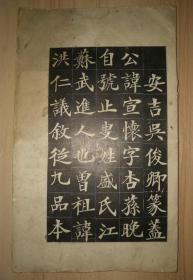 安吉吳俊卿篆蓋
公諱宣懷字杏蓀晚
自號止叟姓盛氏江
蘇武進人也曾祖諱
洪仁議敘從九品本